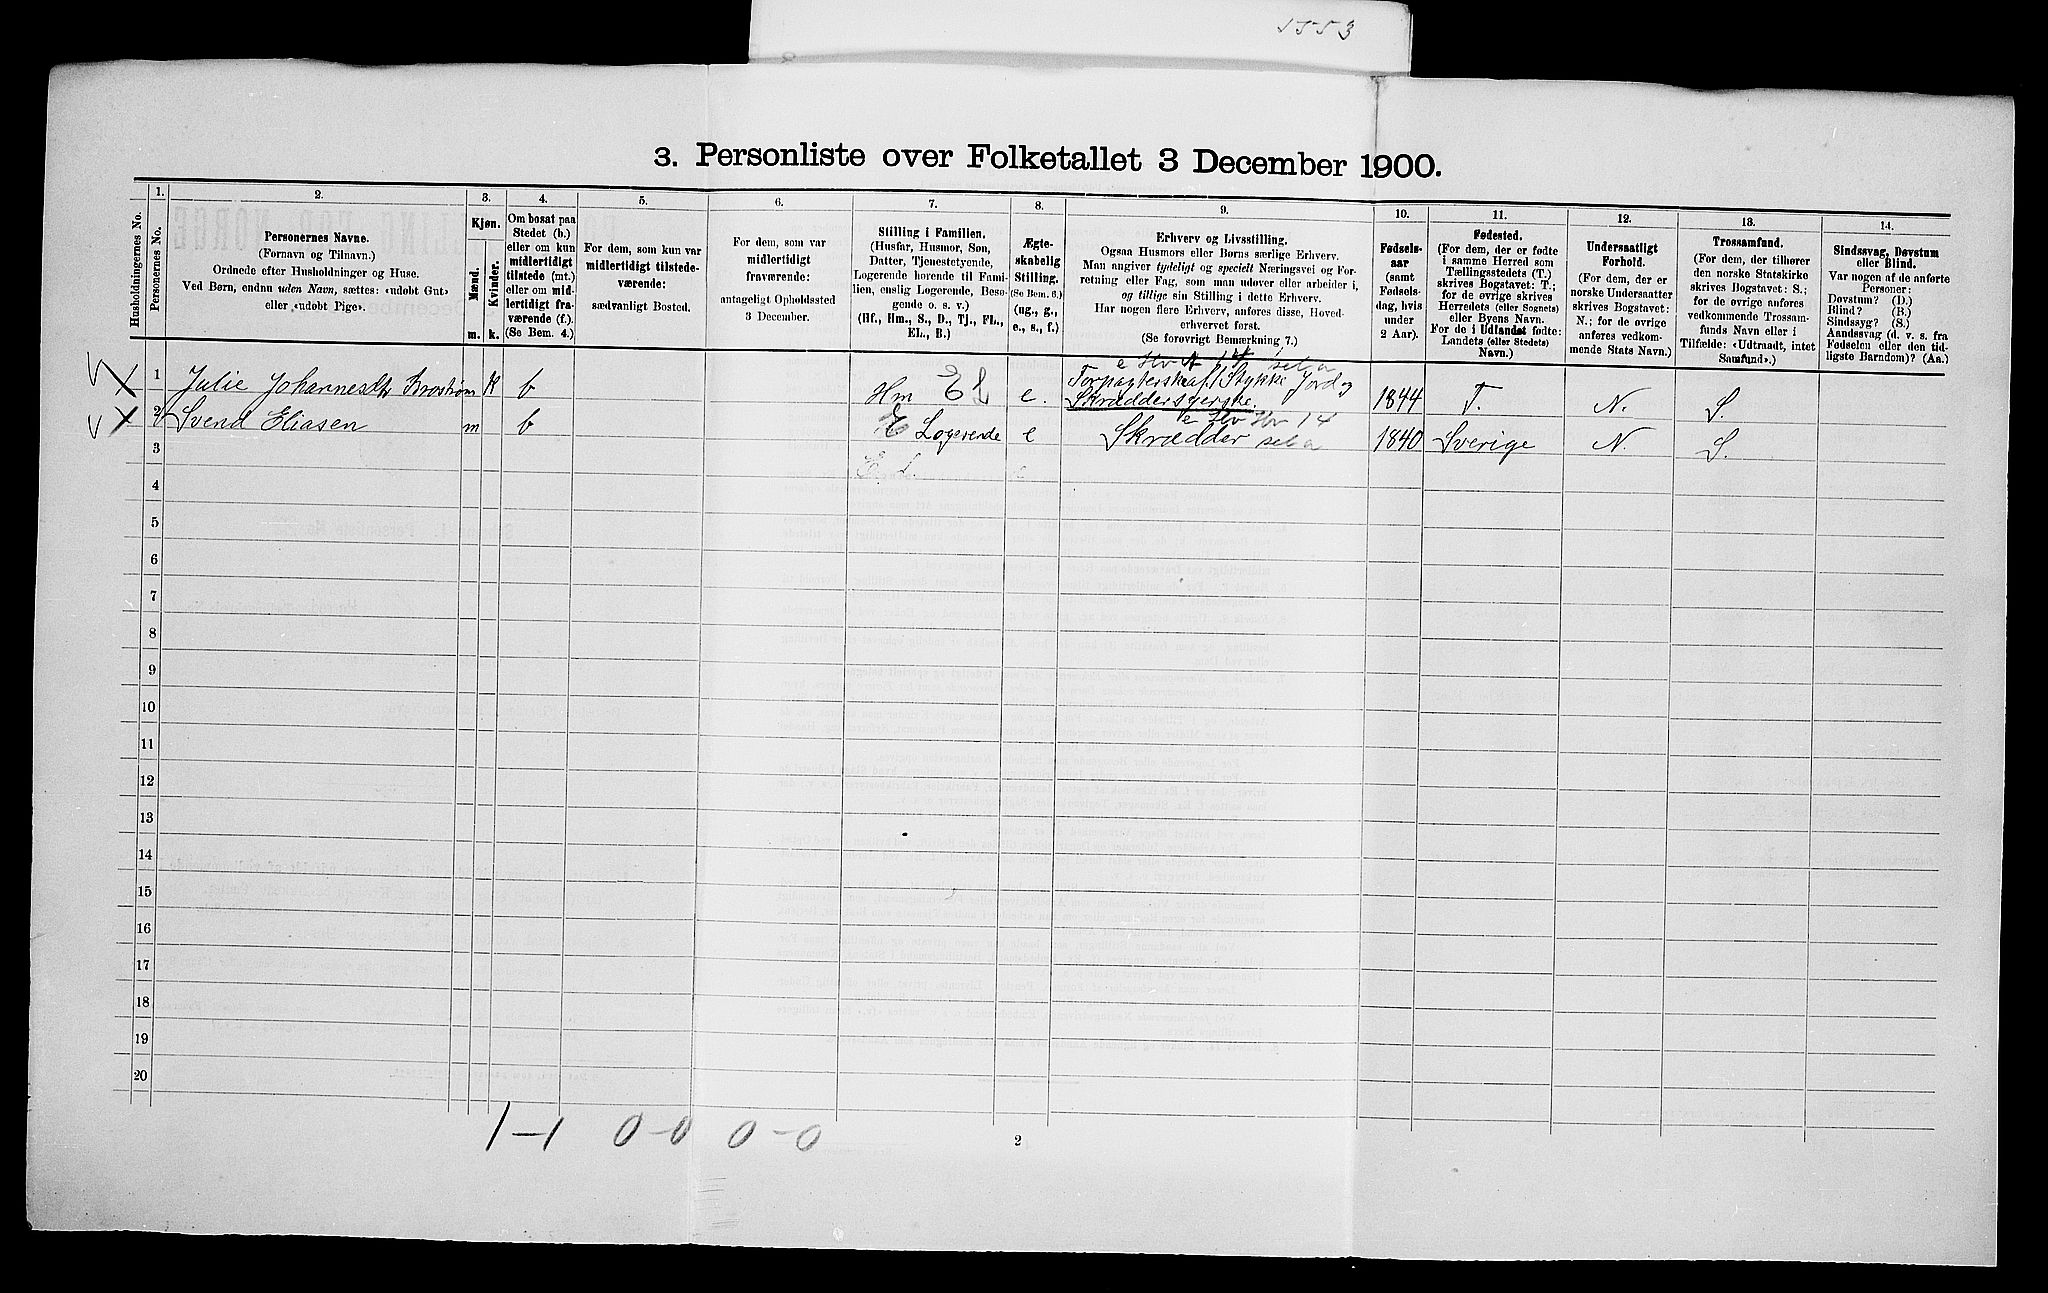 1553
3. Personliste over Folketallet 3 December 1900.
Husholdningernes No.
1.
Personernes No.
2.
Personernes Navne.
(Fornavn og Tilnavn.)
Ordnede efter Husholdninger og Huse.
Ved Børn, endnu uden Navn, sættes: «udøbt Gut»
eller «udøbt Pige».
3.
Kjøn.
Mænd.
Kvinder.
m. k.
4.
Om bosat paa
Stedet (b.)
eller om kun
midlertidigt
tilstede (mt.)
eller om mid-
lertidigt fra-
værende (f.).
(Se Bem. 4.)
5.
For dem, som kun var
midlertidigt tilstede-
værende:
sædvanligt Bosted.
6.
For dem, som var
midlertidigt
fraværende:
antageligt Opholdssted
3 December.
7.
Stilling i Familien.
(Husfar, Husmor, Søn,
Datter, Tjenestetyende,
Logerende hørende til Fami-
lien, enslig Logerende, Besø-
gende o. s. v.)
(Hf., Hm., S., D., Tj., FL.,
EL., B.)
8.
Ægte-
skabelig
Stilling.
(Se Bem. 6.)
(ug., g.,
e., s., f.)
9.
Erhverv og Livsstilling.
Ogsaa Husmors eller Børns særlige Erhverv.
Man angiver tydeligt og specielt Næringsvei og For-
retning eller Fag, som man udøver eller arbeider i,
og tillige sin Stilling i dette Erhverv.
Har nogen flere Erhverv, anføres disse, Hoved-
erhvervet først.
(Se forøvrigt Bemærkning 7.)
10.
Fødsels-
aar
(samt
Fødsels-
dag, hvis
under
2 Aar).
11.
Fødested.
(For dem, der er fødte
i samme Herred som
Tællingsstedets (T.)
skrives Bogstavet: T.;
for de øvrige skrives
Herredets (eller Sognets)
eller Byens Navn.
For de i Udlandet fødte:
Landets (eller Stedets)
Navn.)
12.
Undersaatligt
Forhold.
(For dem, der er
norske Undersaatter
skrives Bogstavet:
N.; for de øvrige
anføres vedkom-
mende Stats Navn.)
13.
Trossamfund.
(For dem, der tilhører
den norske Statskirke
skrives Bogstavet: S.;
for de øvrige anføres
vedkommende Trossam-
funds Navn eller i
Tilfælde: «Udtraadt, intet
Samfund».)
14.
Sindssvag, Døvstum
eller Blind.
Var nogen af de anførte
Personer:
Døvstum? (D.)
Blind? (B.)
Sindssyg? (S.)
Aandssvag (d. v. s. fra
Fødselen eller den tid-
ligste Barndom)? (Aa.)
1 Julie Johannesdtr Broström k b Hm EL e. Skræddersyerske. 1844 T. N. S.
2 Svend Eliasen m b Logerende e Skrædder 1840 Sverige N. S.
3
4
5
6
7
8
9
10
11
12
13
14
15
16
17
18
19
20
1-1 0-0 0-0
2